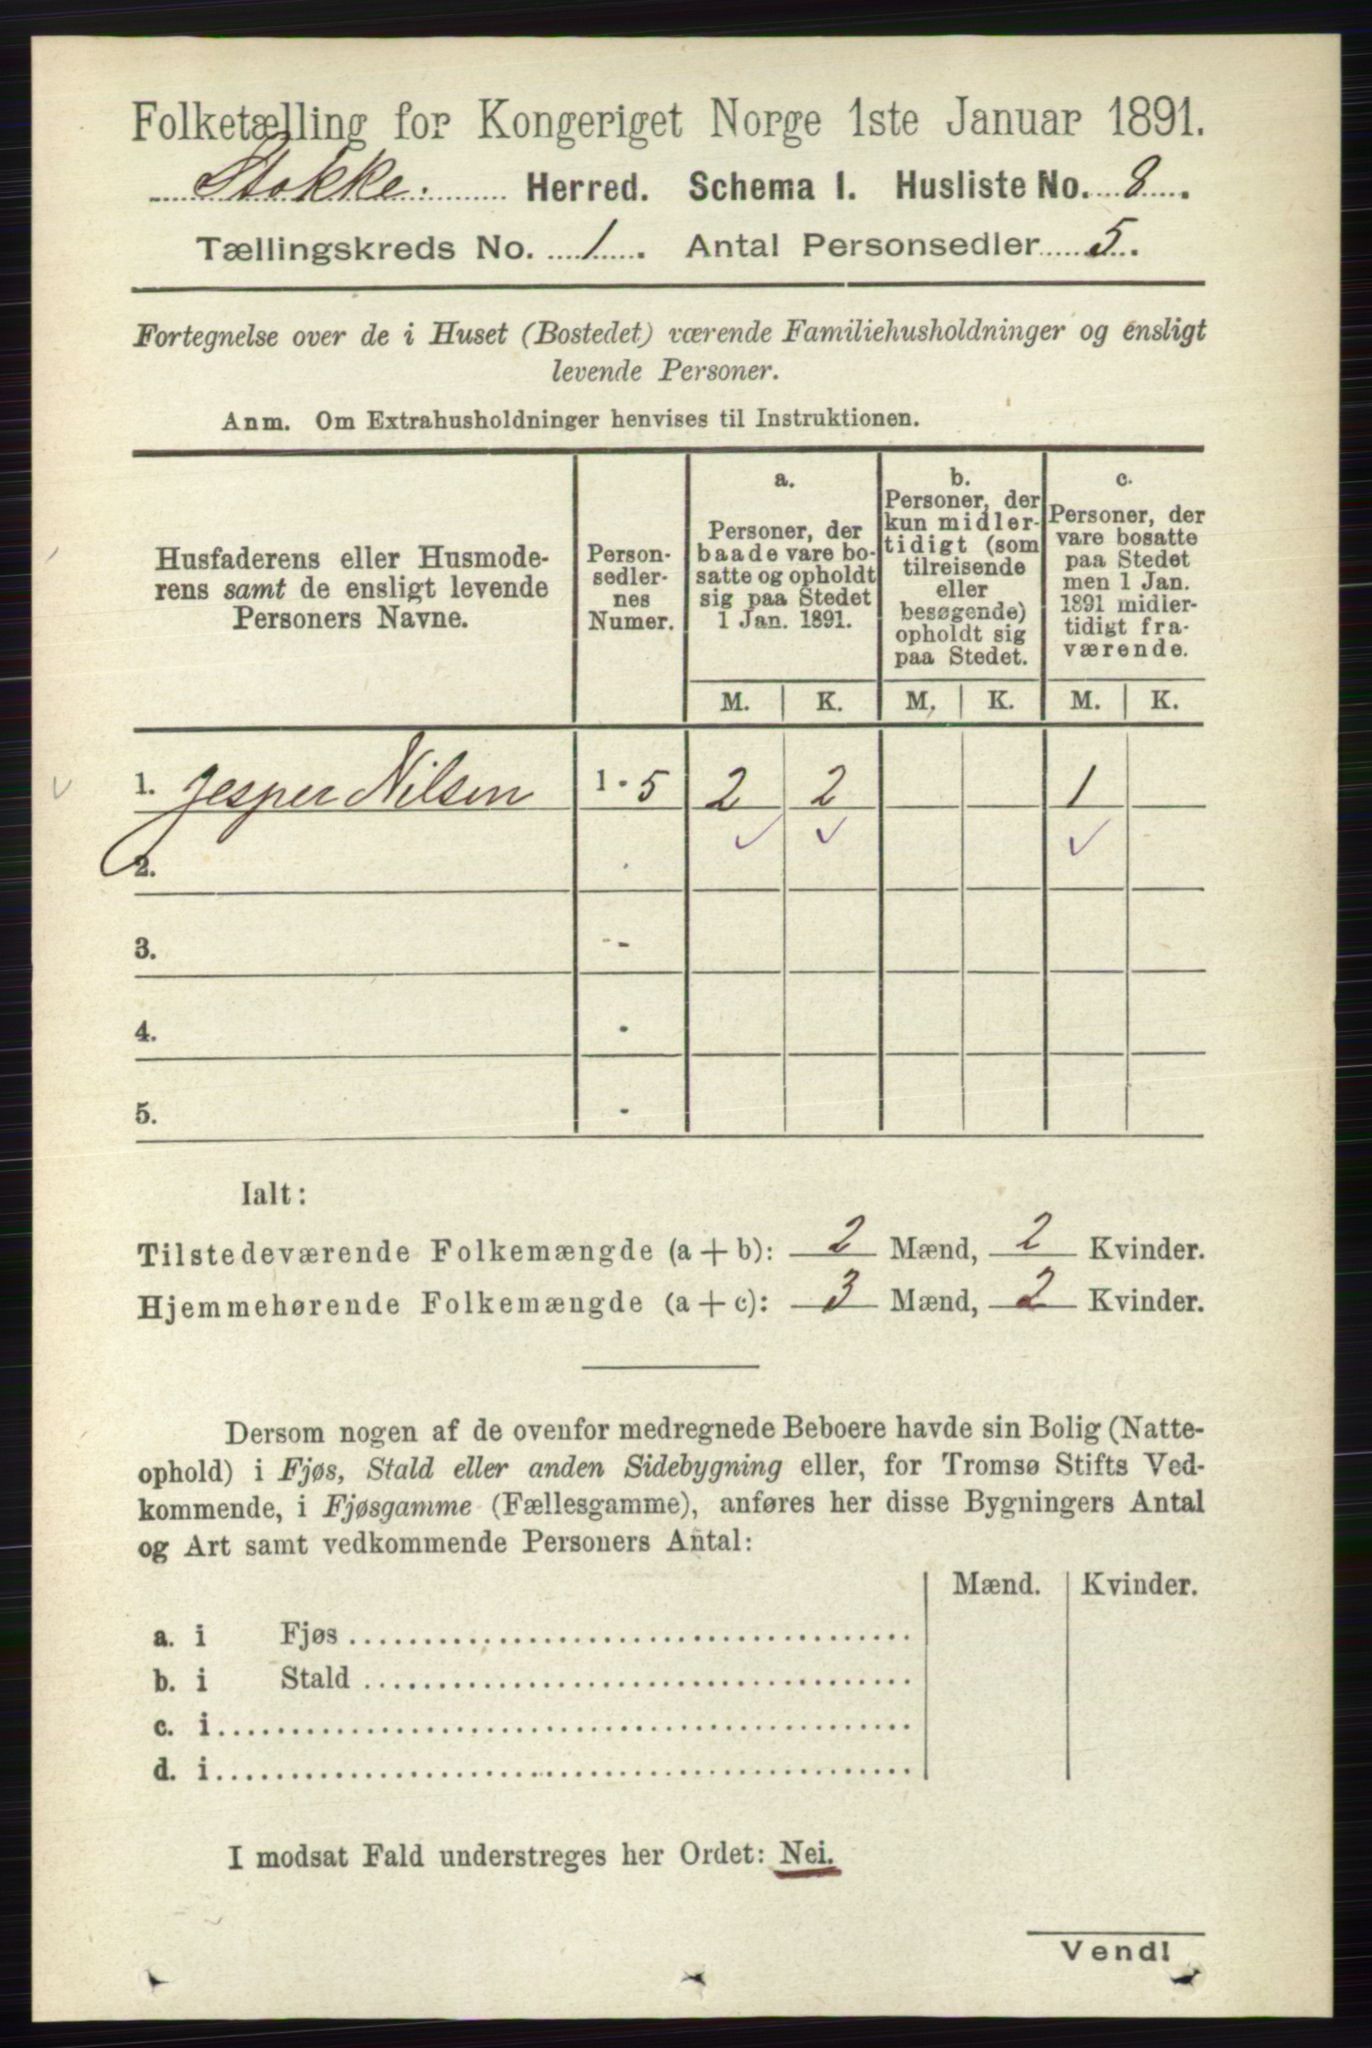 Folketælling for Kongeriget Norge 1ste Januar 1891.
Stokke. Herred. Schema I. Husliste No. 8.
Tællingskreds No. 1. Antal Personsedler 5.
Fortegnelse over de i Huset (Bostedet) værende Familiehusholdninger og ensligt
levende Personer.
Anm. Om Extrahusholdninger henvises til Instruktionen.
Husfaderens eller Husmode-
rens samt de ensligt levende
Personers Navne.
Person-
sedler-
nes
Numer.
a.
Personer, der
baade vare bo-
satte og opholdt
sig paa Stedet
1 Jan. 1891.
b.
Personer, der
kun midler-
tidigt (som
tilreisende
eller
besøgende)
opholdt sig
paa Stedet.
c.
Personer, der
vare bosatte
paa Stedet
men 1 Jan.
1891 midler-
tidigt fra-
værende.
M. K. M. K. M. K.
1. Jesper Nilsen 1 - 5 2 2 1
2.
3. -
4. -
5. -
Ialt:
Tilstedeværende Folkemængde (a + b): 2 Mænd, 2 Kvinder.
Hjemmehørende Folkemængde (a + c): 3 Mænd, 2 Kvinder.
Dersom nogen af de ovenfor medregnede Beboere havde sin Bolig (Natte-
ophold) i Fjøs, Stald eller anden Sidebygning eller, for Tromsø Stifts Ved-
kommende, i Fjøsgamme (Fællesgamme), anføres her disse Bygningers Antal
og Art samt vedkommende Personers Antal:
Mænd. Kvinder.
a. i Fjøs
b. i Stald
c. i
d. i
I modsat Fald understreges her Ordet: Nei.
Vend!